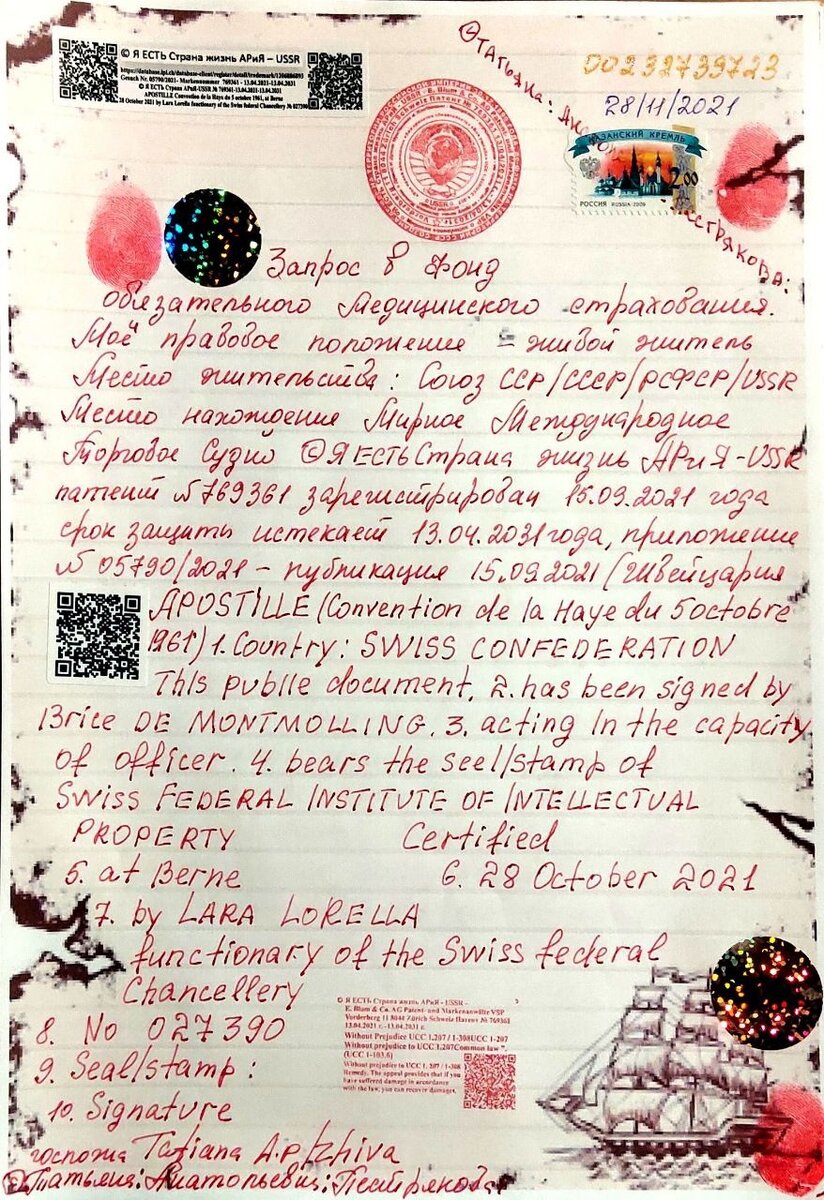 © Я ЕСТЬ Страна жизнь АРиЯ – USSR
https://database.ipi.ch/database-client/register/detail/trademark/1206886093
Gesuch Nr. 05790/2021- Markennummer 769361 - 13.04.2021-13.04.2031
© Я ЕСТЬ Страна АРиЯ-USSR № 769361-13.04.2021-13.04.2031
APOSTILLE Convention de la Haye du 5 octobre 1961, at Berne
28 October 2021 by Lara Lorella functionary of the Swiss federal Chancellery № 027390
©ТАТЬЯНА:
00232739723
28/11/2021
КАЗАНСКИЙ КРЕМЛЬ
2.00
РОССИЯ RUSSIA 2009
USSR
Запрос в Фонд
обязательного Медицинского страхования.
Моё правовое положение – живой житель
Место жительства: Союз ССР/СССР/РСФСР/USSR
Место нахождение Мирное Международное
Торговое Судно ©ЯЕСТЬСтрана жизнь АРиЯ-USSR
патент №769361 зарегистрирован 15.09.2021 года
срок защиты истекает 13.04.2031года, приложение
№05790/2021 – публикация 15.09.2021 (Швейцария
APOSTILLE (Convention de la Haye du 5octobre
1961) 1. Country: SWISS CONFEDERATION
This publie document, 2. has been signed by
Brice DE MONTMOLLING. 3. acting In the capacity
of officer. 4. bears the seel/stamp of
Swiss FEDERAL INSTITUTE OF INTELLECTUAL
PROPERTY Certified
5. at Berne 6. 28 October 2021
7. by LARA LORELLA
functionary of the Swiss federal
Chancellery
8. No 027390
9. Seal/stamp:
10. Signature
© Я ЕСТЬ Страна жизнь АРиЯ - USSR -
E. Blum & Co. AG Patent- und Markenanwälte VSP
Vorderberg 11 8044 Zürich Schweiz Патент № 769361
13.04.2021 г. -13.04.2031 г.
Without Prejudice UCC 1.207 / 1-308UCC 1-207
Without prejudice to UCC 1.207Common law ".
(UCC 1-103.6)
Without prejudice to UCC 1. 207 / 1-308
Remedy. The appeal provides that if you
have suffered damage in accordance
with the law, you can recover damages.
госпожа Tatiana A.p/zhiva
©Татьяна: Анатольевна: Пестрякова